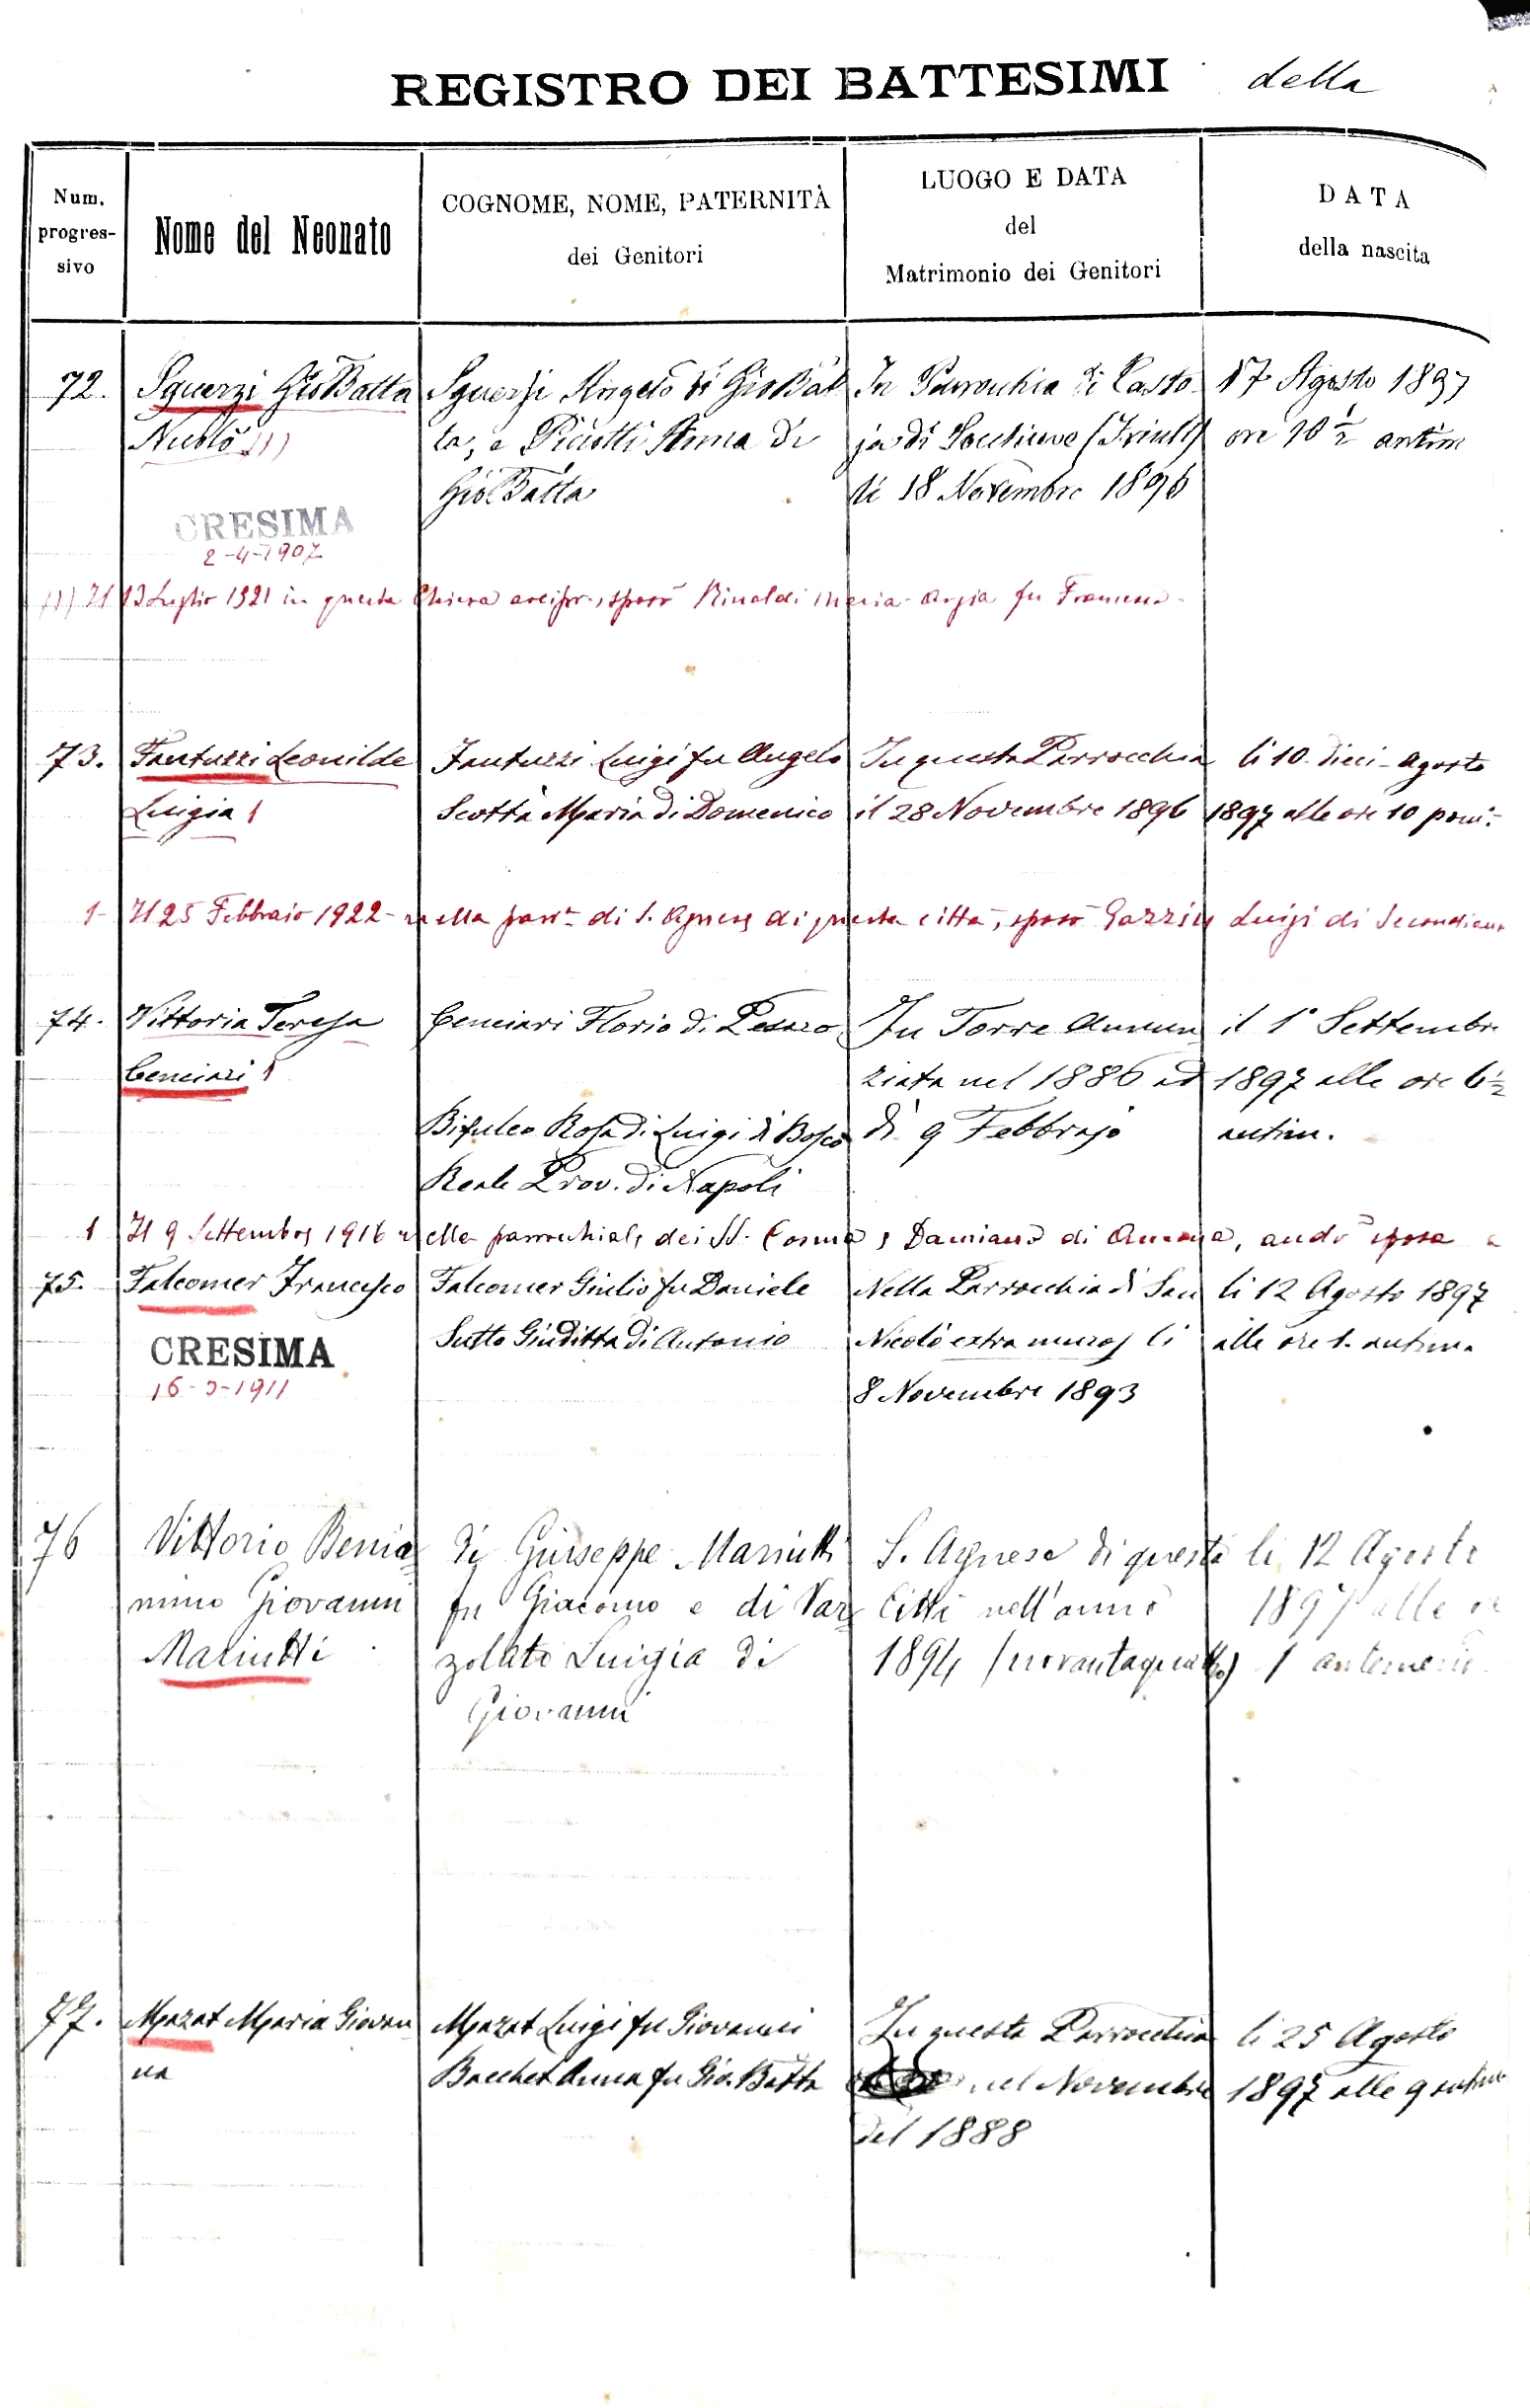 REGISTRO DEI BATTESIMI della
Num.
progres-
sivo
Nome del Neonato
COGNOME, NOME, PATERNITÀ
dei Genitori
LUOGO E DATA
del
Matrimonio dei Genitori
DATA
della nascita
72.
Sguerzi GioBatta
Nicolò (1)
CRESIMA
2-4-1907
Sguerzi Angelo di GioBat
ta, e Piciotti Anna di
GioBatta
In Parrochia di Casto
ja di Socchieve (Friuli)
li 18 Novembre 1896
17 Agosto 1897
ore 10 ½ antim
(1) Il 13 Luglio 1921 in questa Chiesa arcipr., sposò Rinaldi Maria-Argia fu Francesco-
73.
Fantuzzi Leonilde
Luigia 1
Fantuzzi Luigi fu Angelo
Scottà Maria di Domenico
In questa Parrocchia
il 28 Novembre 1896
li 10. dieci - Agosto
1897 alle ore 10 pom:
1- Il 25 Febbraio 1922 - nella parr. di S. Agnese di questa città, sposò Luigi di
74.
Vittoria Teresa
Cenciari 1
Cenciari Florio di Pesaro
Bifulco Rosa di Luigi di Bosco
Reale Prov. di Napoli
In Torre Annun
ziata nel 1886 ad
di 9 Febbrajo
il 1° Settembre
1897 alle ore 6 ½
antim.
1 Il 9 Settembre 1916 nella parrochiale dei SS. Cosma e Damiano di Ancona, andò sposa a
75.
Falcomer Francesco
CRESIMA
16-3-1911
Falcomer Giulio fu Daniele
Sutto Giuditta di Antonio
Nella Parrocchia di San
Nicolò extra muros li
8 Novembre 1893
li 12 Agosto 1897
alle ore 1. antim.
76
Vittorio Benia
mino Giovanni
Mariutti
di Giuseppe Mariutti
fu Giacomo e di Var
zolato Luigia di
Giovanni
S. Agnese di questa
Città nell'anno
1894 (novantaquattro)
li 12 Agosto
1897 alle ore
1 antemerid.
77.
Mazat Maria Giovan
na
Mazat Luigi fu Giovanni
Bacchet Anna fu Gio. Batta
In questa Parrocchia
nel Novembre
del 1888
li 25 Agosto
1897 alle 9 antim